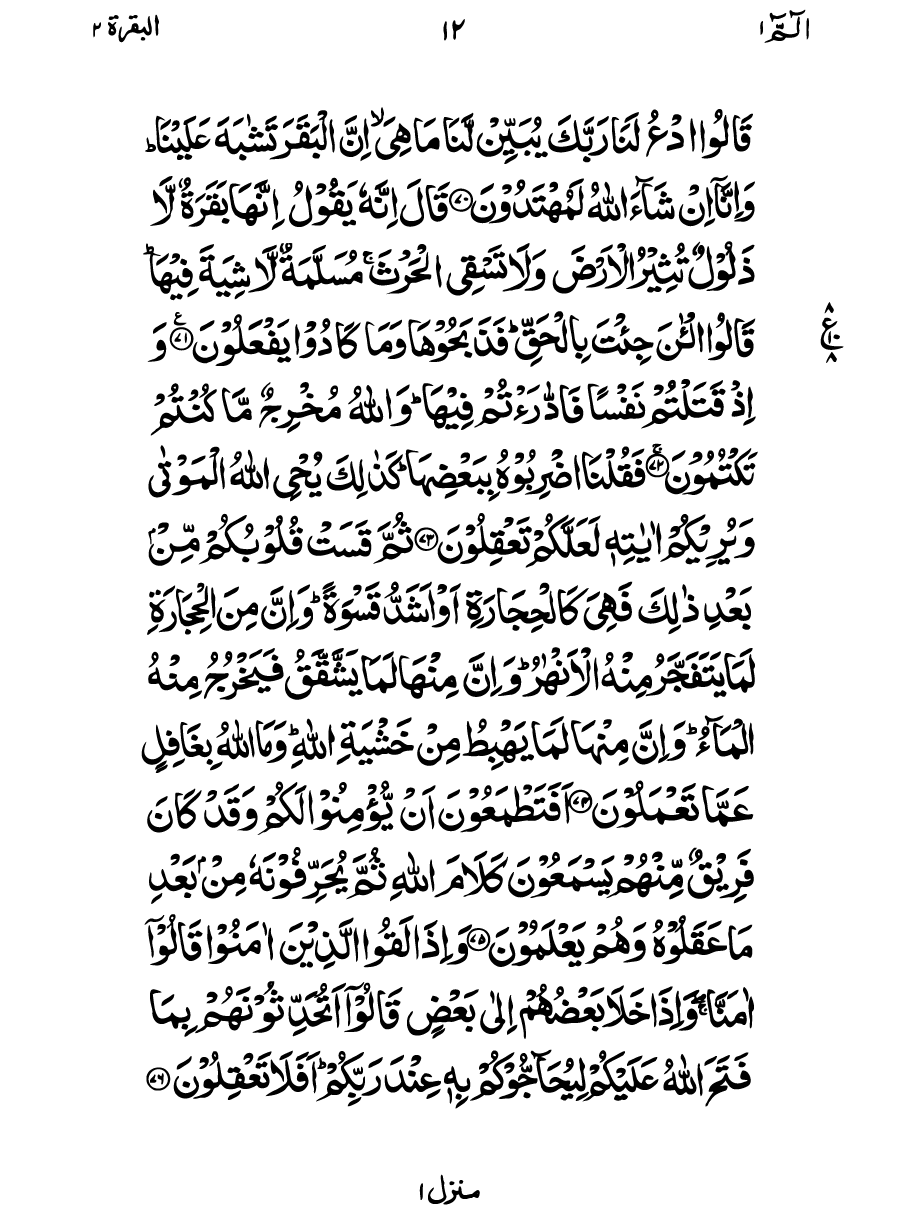 الٓمّٓ ١ ١٢ البقرة ٢
قَالُوا ادْعُ لَنَا رَبَّكَ يُبَيِّنْ لَّنَا مَا هِىَ ۙ اِنَّ الْبَقَرَ تَشٰبَهَ عَلَيْنَا ؕ
وَاِنَّاۤ اِنْ شَآءَ اللّٰهُ لَمُهْتَدُوْنَ ﴿۷۰﴾ قَالَ اِنَّهٗ يَقُوْلُ اِنَّهَا بَقَرَةٌ لَّا
ذَلُوْلٌ تُثِيْرُ الْاَرْضَ وَلَا تَسْقِى الْحَرْثَ ۚ مُسَلَّمَةٌ لَّا شِيَةَ فِيْهَا ؕ
قَالُوا الْـٰٔنَ جِئْتَ بِالْحَقِّ ؕ فَذَبَحُوْهَا وَمَا كَادُوْا يَفْعَلُوْنَ ﴿۷۱﴾ ع وَ
اِذْ قَتَلْتُمْ نَفْسًا فَادّٰرَءْتُمْ فِيْهَا ؕ وَاللّٰهُ مُخْرِجٌ مَّا كُنْتُمْ
تَكْتُمُوْنَ ۚ ﴿۷۲﴾ فَقُلْنَا اضْرِبُوْهُ بِبَعْضِهَا ؕ كَذٰلِكَ يُحْىِ اللّٰهُ الْمَوْتٰى
وَيُرِيْكُمْ اٰيٰتِهٖ لَعَلَّكُمْ تَعْقِلُوْنَ ﴿۷۳﴾ ثُمَّ قَسَتْ قُلُوْبُكُمْ مِّنْۢ
بَعْدِ ذٰلِكَ فَهِىَ كَالْحِجَارَةِ اَوْ اَشَدُّ قَسْوَةً ؕ وَاِنَّ مِنَ الْحِجَارَةِ
لَمَا يَتَفَجَّرُ مِنْهُ الْاَنْهٰرُ ؕ وَاِنَّ مِنْهَا لَمَا يَشَّقَّقُ فَيَخْرُجُ مِنْهُ
الْمَآءُ ؕ وَاِنَّ مِنْهَا لَمَا يَهْبِطُ مِنْ خَشْيَةِ اللّٰهِ ؕ وَمَا اللّٰهُ بِغَافِلٍ
عَمَّا تَعْمَلُوْنَ ﴿۷۴﴾ اَفَتَطْمَعُوْنَ اَنْ يُّؤْمِنُوْا لَكُمْ وَقَدْ كَانَ
فَرِيْقٌ مِّنْهُمْ يَسْمَعُوْنَ كَلَامَ اللّٰهِ ثُمَّ يُحَرِّفُوْنَهٗ مِنْۢ بَعْدِ
مَا عَقَلُوْهُ وَهُمْ يَعْلَمُوْنَ ﴿۷۵﴾ وَاِذَا لَقُوا الَّذِيْنَ اٰمَنُوْا قَالُوْۤا
اٰمَنَّا ۖۚ وَاِذَا خَلَا بَعْضُهُمْ اِلٰى بَعْضٍ قَالُوْۤا اَتُحَدِّثُوْنَهُمْ بِمَا
فَتَحَ اللّٰهُ عَلَيْكُمْ لِيُحَآجُّوْكُمْ بِهٖ عِنْدَ رَبِّكُمْ ؕ اَفَلَا تَعْقِلُوْنَ ﴿۷۶﴾
۸
ع ۱۰
۸
منزل ١